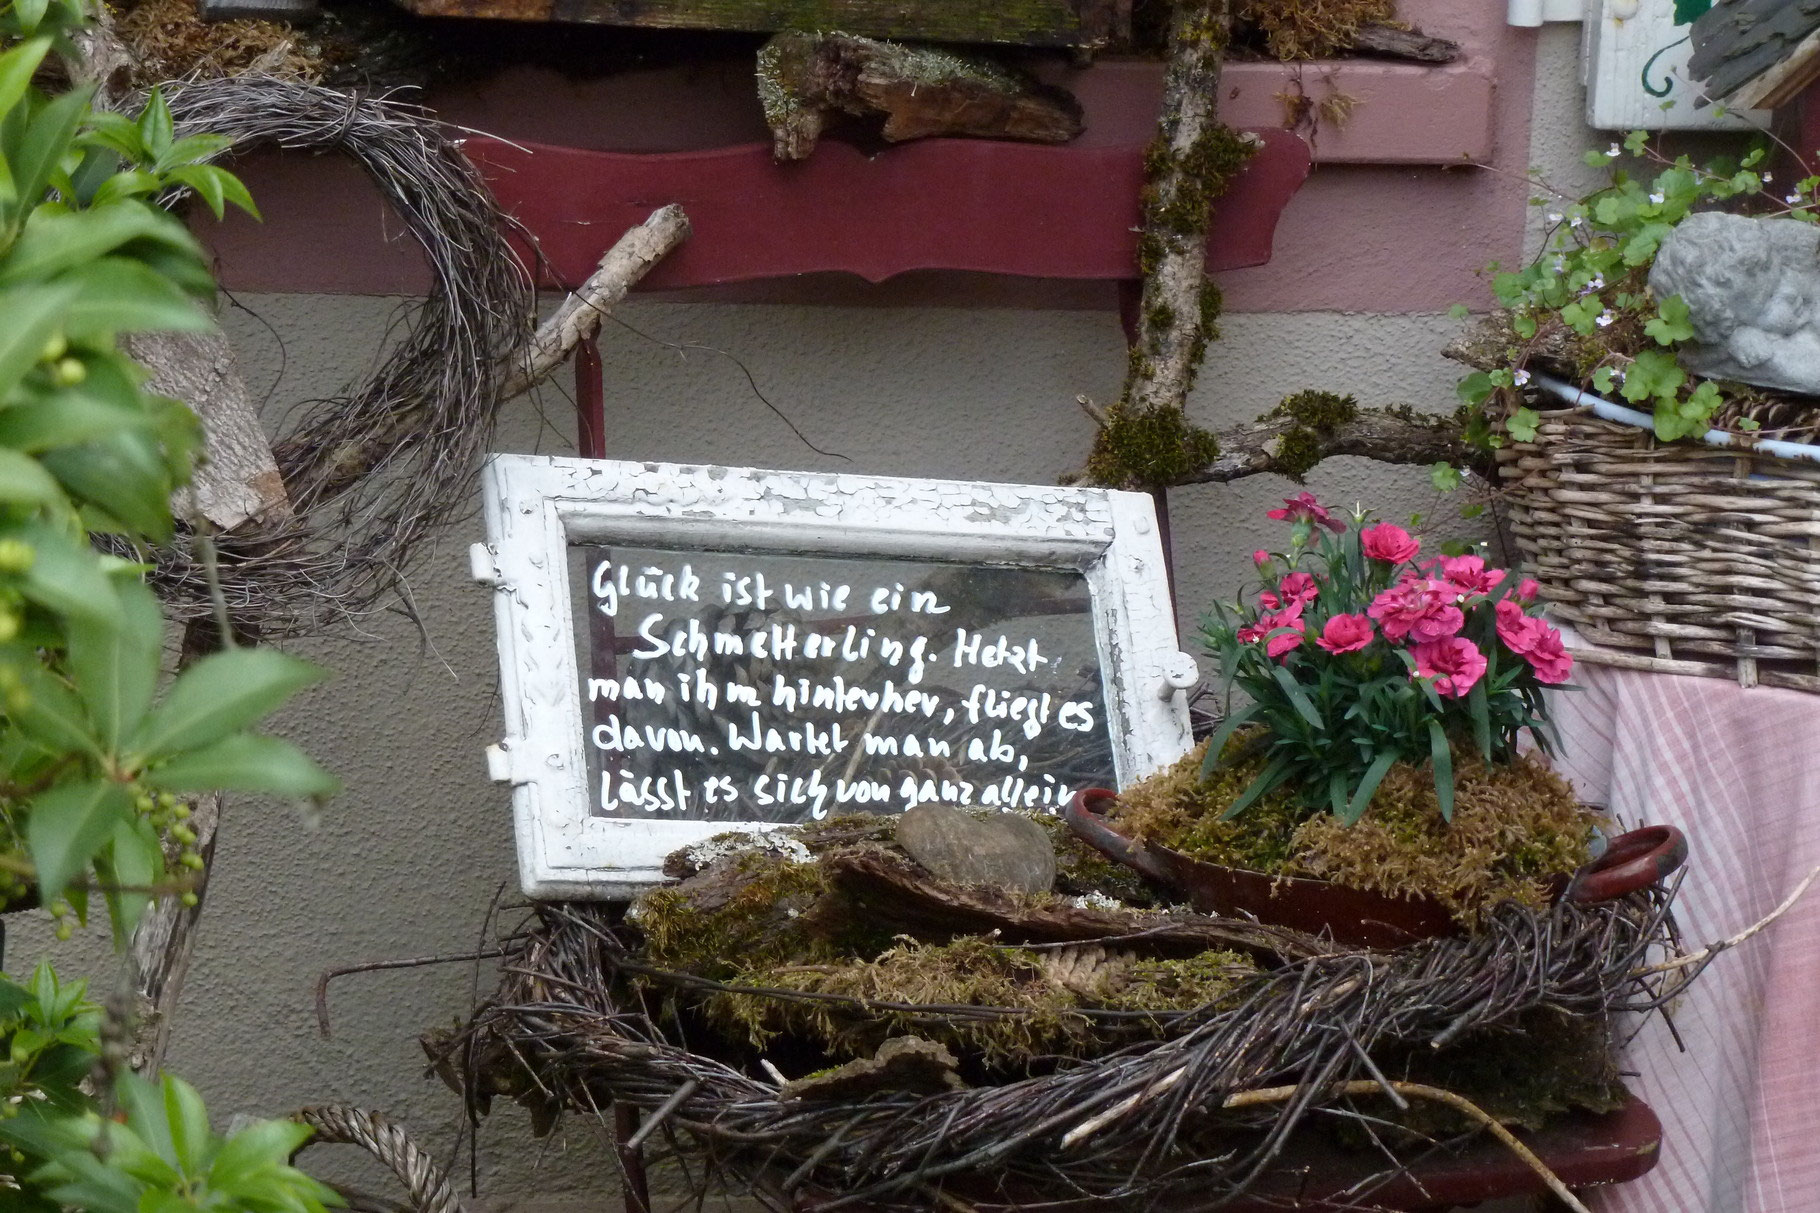 Glück ist wie ein
Schmetterling. Hetzt
man ihm hinterher, fliegt es
davon. Wartet man ab,
lässt es sich von ganz allein